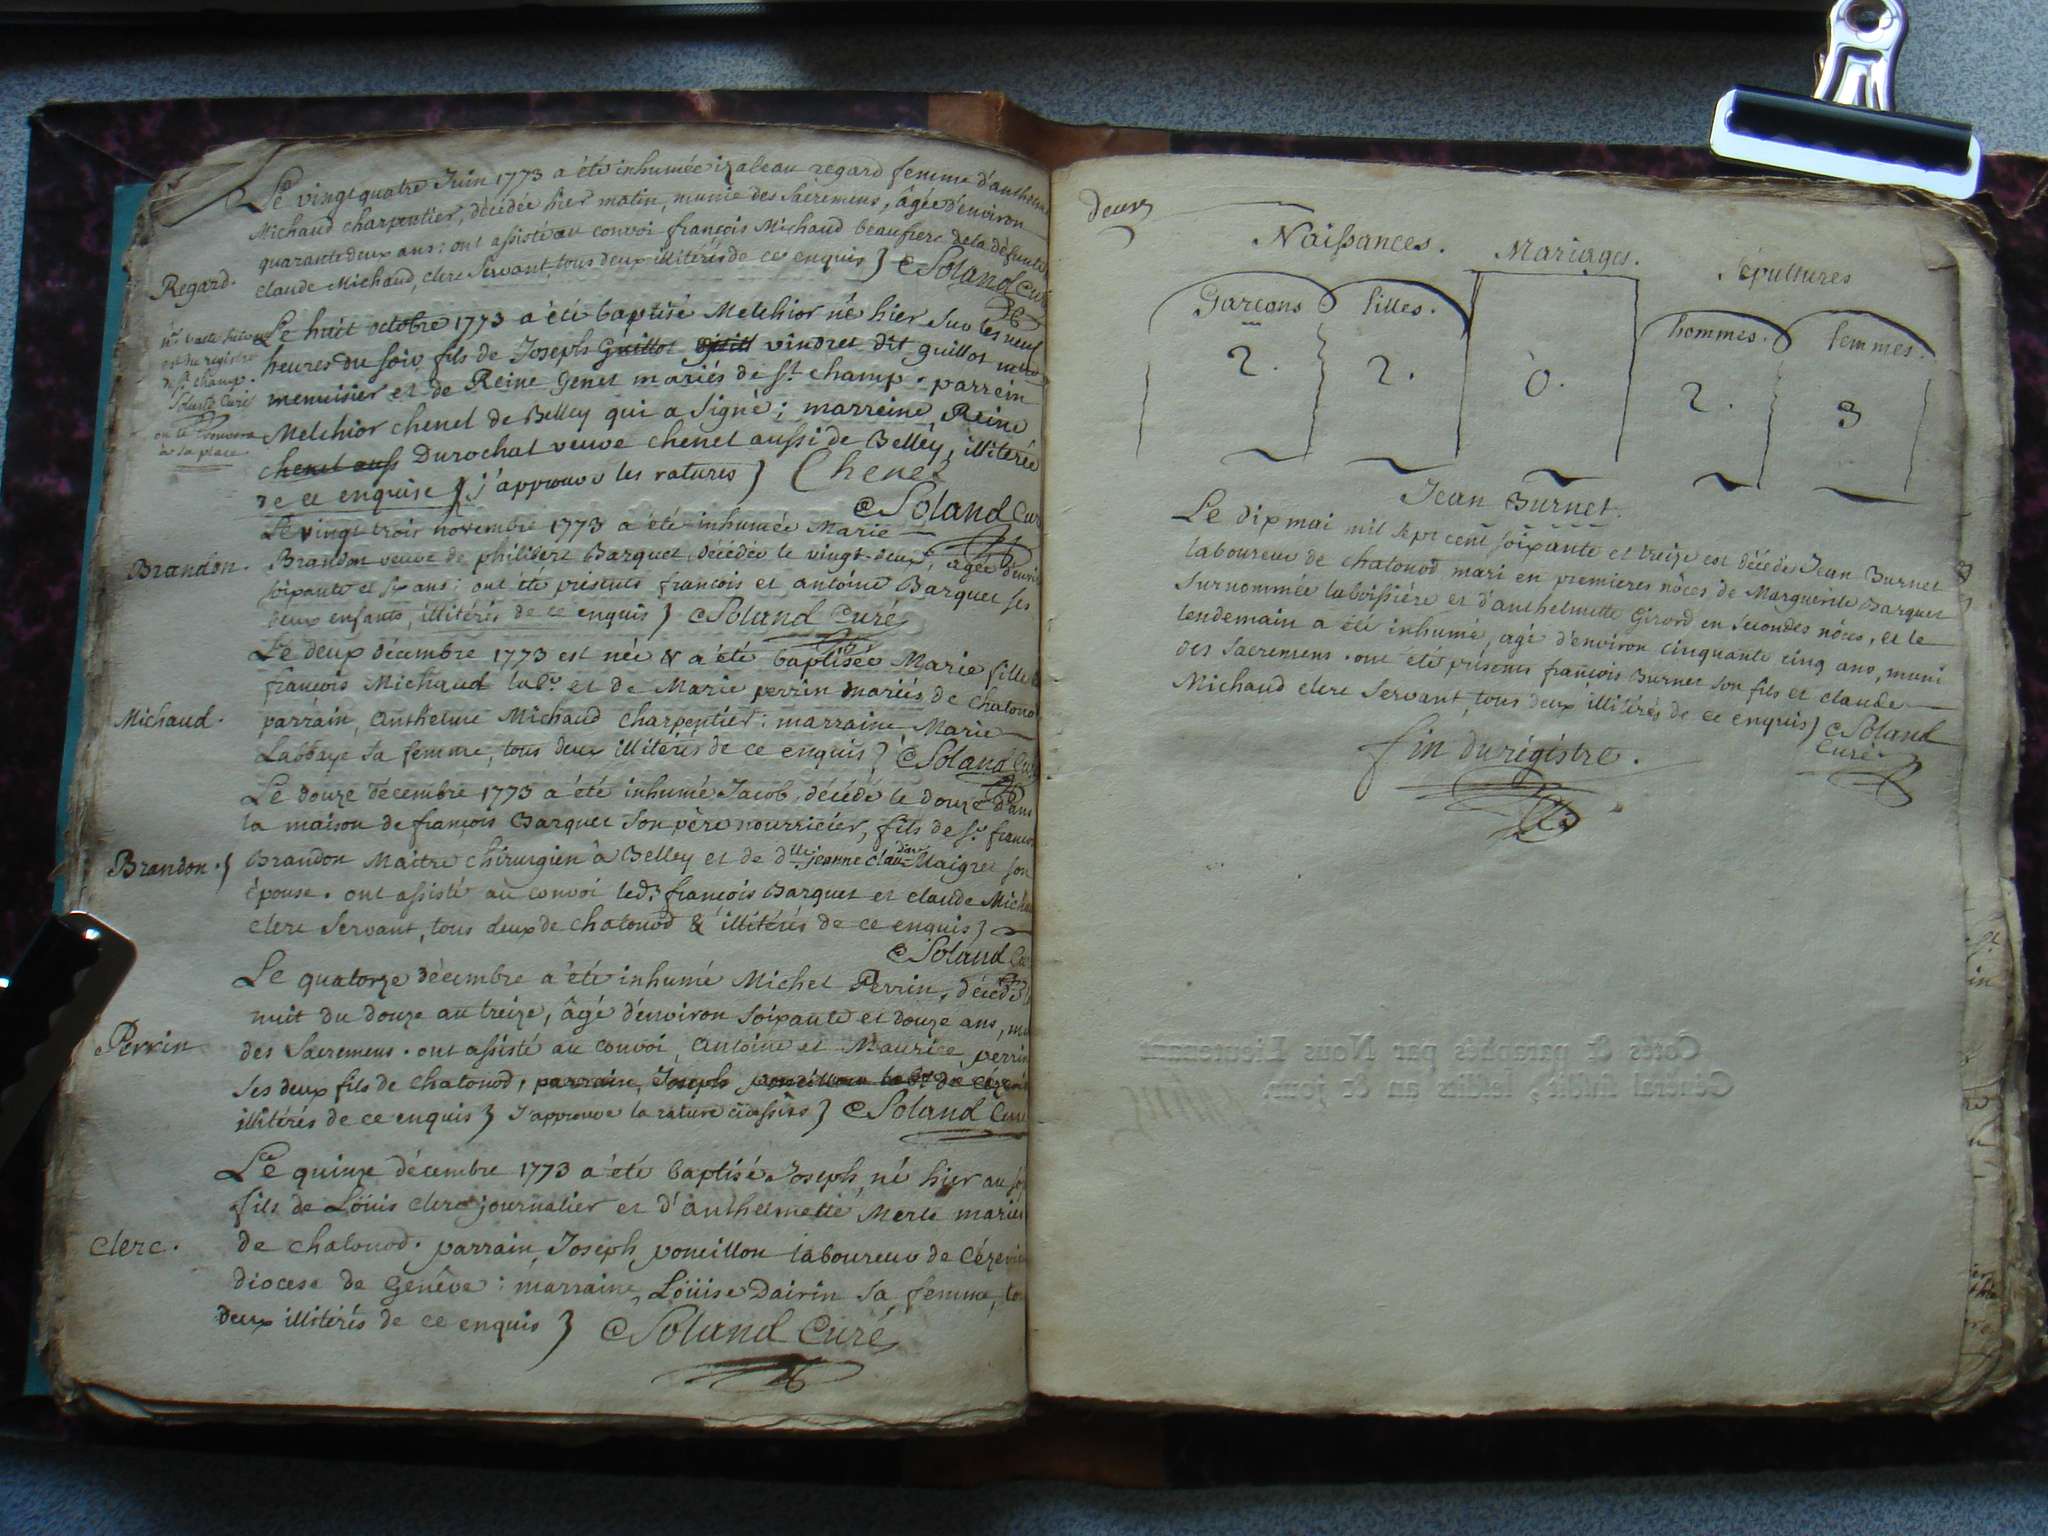 Le vingt quatre Juin 1773 a été inhumée izabeau regard femme d'anthelme
Michaud charpentier, décédée hier matin, munie des Sacremens, âgée d'environ
quarante deux ans : ont assisté au convoi françois Michaud beaufrere de la défunte
Regard.
claude Michaud, clerc Servant, tous deux illitérés de ce enquis } Soland Curé
Le huit octobre 1773 a été baptisé Melchior né hier sur les neuf
heures du soir, fils de Joseph Guillot vindret dit guillot
menuisier et de Reine Genet mariés de St champ. parrein
Melchior chenet de Belley qui a signé ; marreine, Reine
chenet auss Durochat veuve chenet aussi de Belley, illitérée
de ce enquise } j'approuve les ratures } Chenet
est du registre
de St champ.
Soland Curé
on le trouvera
à sa place
Soland Curé
Le vingt trois novembre 1773 a été inhumée Marie
Brandon.
Brandon veuve de philibert Barquet, décédée le vingt-deux, agée d'environ
soixante et six ans : ont été présents françois et antoine Barquet ses
deux enfants, illitérés de ce enquis } Soland Curé
Le deux décembre 1773 est née & a été baptisée Marie fille de
françois Michaud labr. et de Marie perrin mariés de chatonod
Michaud.
parrain, anthelme Michaud charpentier : marraine, Marie
Labbaye sa femme, tous deux illitérés de ce enquis } Soland Curé
Le douze décembre 1773 a été inhumé Jacob, décédé le douze dans
la maison de françois Barquet son père nourricier, fils de Sr. françois
Brandon. }
Brandon Maitre chirurgien à Belley et de dlle. jeanne claudine Maigret son
épouse. ont assisté au convoi led. françois Barquet et claude Michaud
clerc servant, tous deux de chatonod & illitérés de ce enquis }
Soland Curé
Le quatorze décembre a été inhumé Michel Perrin, décédé la
nuit du douze au treize, âgé d'environ soixante et douze ans, muni
Perrin
des Sacremens. ont assisté au convoi, antoine et Maurice perrin
ses deux fils de chatonod, parrain, Joseph poncillon labr. de
illitérés de ce enquis } j'approuve la rature ci dessus } Soland Curé
Le quinze décembre 1773 a été baptisé Joseph, né hier au soir
fils de Löuis clerc journalier et d'anthelmette Merle mariés
Clerc.
de chatonod. parrain, Joseph poncillon laboureur de Cézerieu
diocese de Genêve : marraine, Löuise Dairin sa femme, tous
deux illitérés de ce enquis } Soland Curé
deux
Naissances. Mariages. Sépultures
Garçons filles. hommes. femmes.
2. 2. 0. 2. 3
Jean Burnet.
Le dix mai mil sept cent soixante et treize est décédé Jean Burnet
laboureur de chatonod mari en premieres nôces de Marguerite Barquet
surnommée laboissière et d'anthelmette Girord en secondes nôces, et le
lendemain a été inhumé, agé d'environ cinquante cinq ans, muni
des Sacremens. ont été présents françois Burnet son fils et claude
Michaud clerc servant, tous deux illitérés de ce enquis } Soland
Curé
fin du régistre.
Cotés & paraphés par Nous Lieutenant
Général susdit, lesdits an & jour.